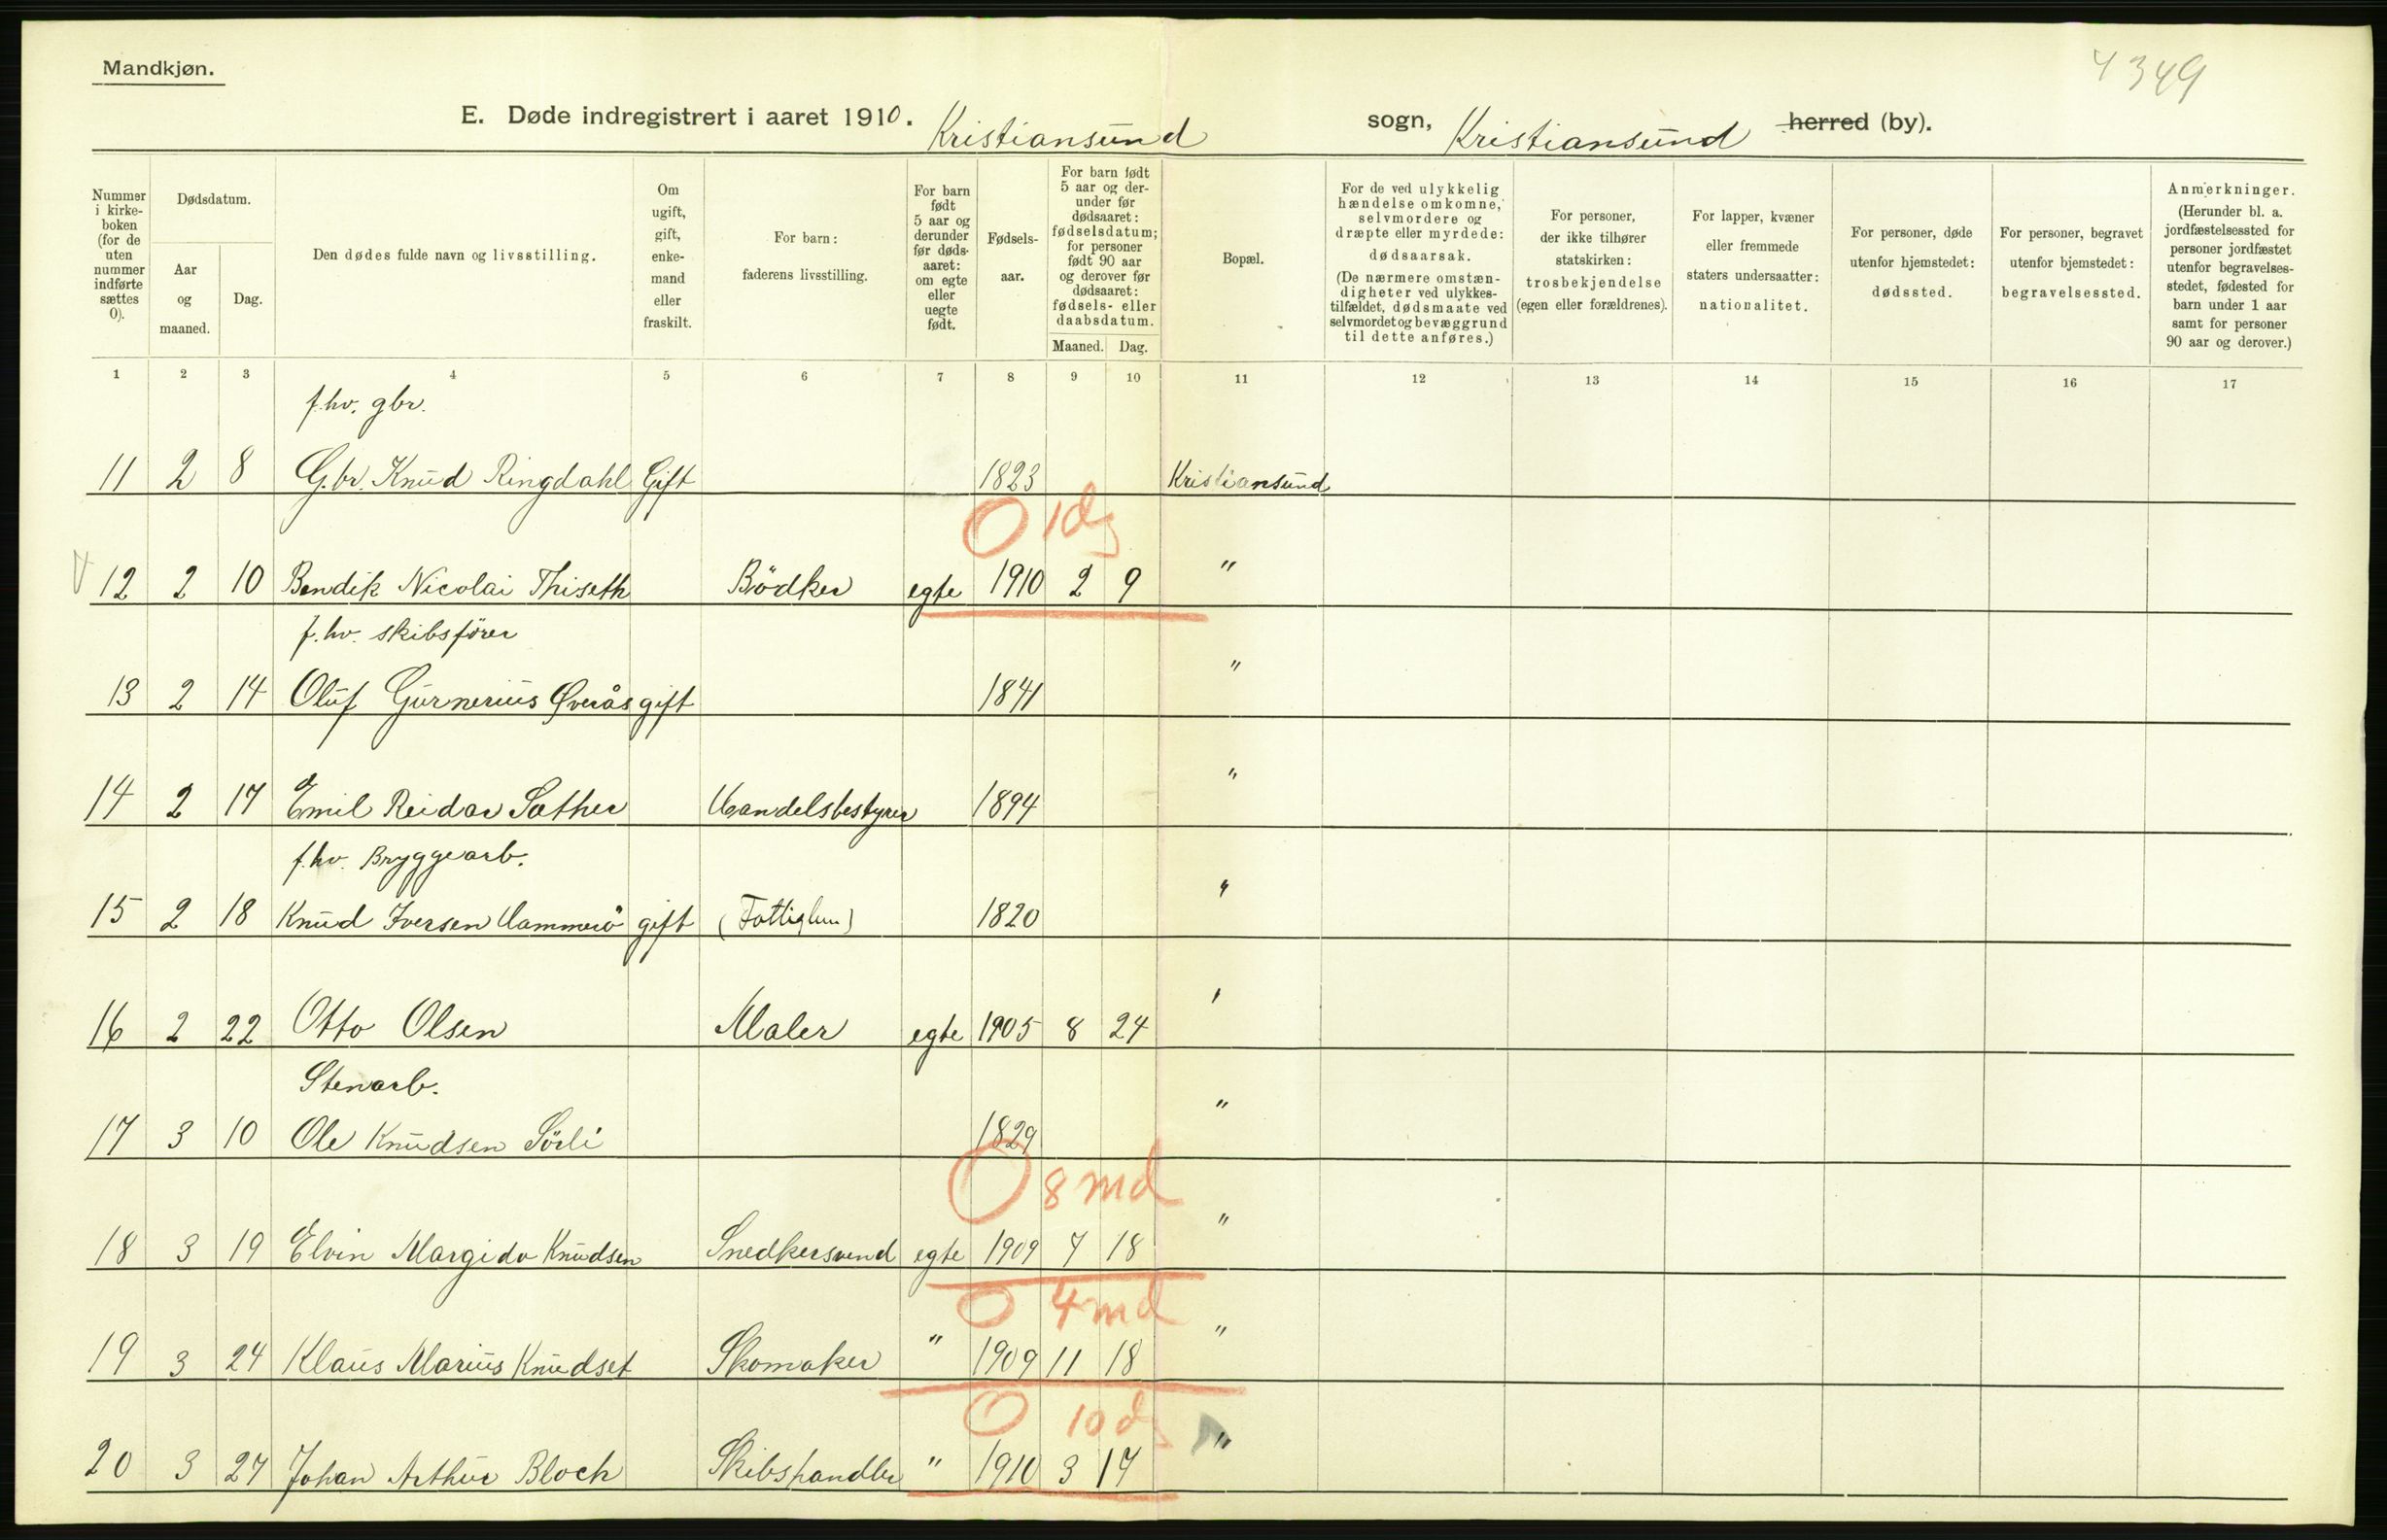 Mandkjøn.
4349
E. Døde indregistrert i aaret 1910. Kristiansund sogn, Kristiansund herred (by).
Nummer i kirke-boken (for de uten nummer indførte sættes 0).
Dødsdatum.
Aar og maaned.
Dag.
Den dødes fulde navn og livsstilling.
Om ugift, gift, enke-mand eller fraskilt.
For barn: faderens livsstilling.
For barn født 5 aar og derunder før døds-aaret: om egte eller uegte født.
Fødsels-aar.
For barn født 5 aar og der-under før dødsaaret: fødselsdatum; for personer født 90 aar og derover før dødsaaret: fødsels- eller daabsdatum.
Maaned. Dag.
Bopæl.
For de ved ulykkelig hændelse omkomne, selvmordere og dræpte eller myrdede: dødsaarsak. (De nærmere omstæn-digheter ved ulykkes-tilfældet, dødsmaate ved selvmordet og bevæggrund til dette anføres.)
For personer, der ikke tilhører statskirken: trosbekjendelse (egen eller forældrenes).
For lapper, kvæner eller fremmede staters undersaatter: nationalitet.
For personer, døde utenfor hjemstedet: dødssted.
For personer, begravet utenfor bjemstedet: begravelsessted.
Anmerkninger. (Herunder bl. a. jordfæstelsessted for personer jordfæstet utenfor begravelses-stedet, fødested for barn under 1 aar samt for personer 90 aar og derover.)
1 2 3 4 5 6 7 8 9 10 11 12 13 14 15 16 17
f.hv. gbr.
11 2 8 G.br. Knud Ringdahl Gift 1823 Kristiansund
0 1 dg
12 2 10 Bendik Nicolai Thiseth Bödker egte 1910 2 9 "
f.hv. skibsförer
13 2 14 Oluf Gurnerius Øverås gift 1841 "
14 2 17 Emil Reidar Sæther Handelsbestyrer 1894 "
f.hv. Bryggearb.
15 2 18 Knud Iversen Hammerö gift (Fattiglem) 1820 "
16 2 22 Otto Olsen Maler egte 1905 8 24 "
Stenarb.
17 3 10 Ole Knudsen Sörli 1829 "
0 8 md
18 3 19 Elvin Margido Knudsen Snedkersvend egte 1909 7 18 "
0 4 md
19 3 24 Klaus Marius Knudset Skomaker " 1909 11 18 "
0 10 dg
20 3 27 Johan Arthur Bloch Skibshandler " 1910 3 17 "